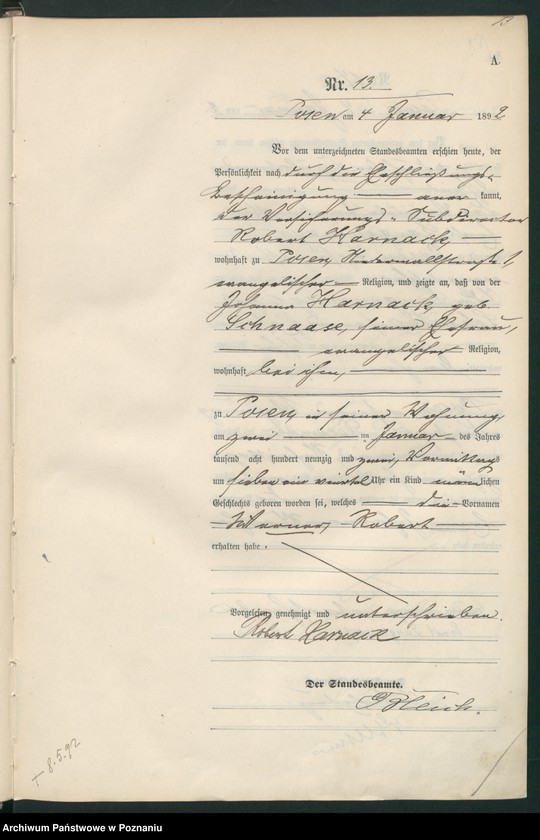 13
A.
Nr. 13.
Posen am 4 Januar 1892
Vor dem unterzeichneten Standesbeamten erschien heute, der
Persönlichkeit nach durch die Eheschließungs-
bescheinigung aner kannt,
der Versicherungs-Subdirector
Robert Harnack,
wohnhaft zu Posen, Niederwallstraße 1
evangelischer Religion, und zeigte an, daß von der
Johanna Harnack, geb
Schnaase, seiner Ehefrau,
evangelischer Religion,
wohnhaft bei ihm,
zu Posen, in seiner Wohnung,
am zwei ten Januar des Jahres
tausend acht hundert neunzig und zwei, Vormittags
um sieben ein viertel Uhr ein Kind männlichen
Geschlechts geboren worden sei, welches die Vornamen
Werner, Robert
erhalten habe.
Vorgelesen, genehmigt und unterschrieben.
Robert Harnack
Der Standesbeamte.
+ 8.5.92
Archiwum Państwowe w Poznaniu